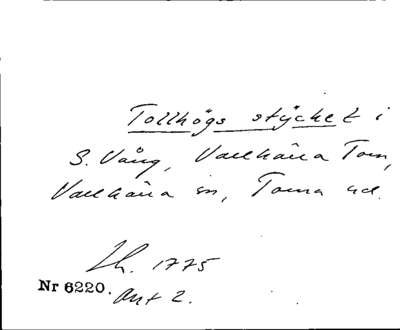 Tollhögs stycket i
S. Vång, Vallkärra Torn,
Vallkärra sn, Torna hd.
Lh. 1775
Nr 6220. Akt 2.